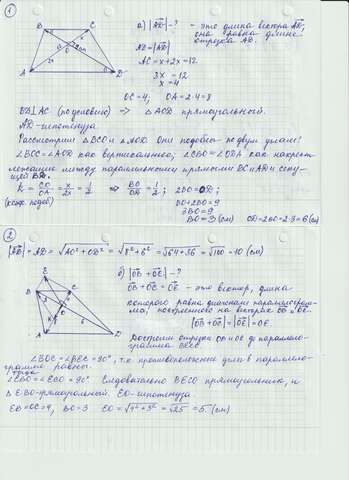 ①
а) |AD|-? - это длина вектора AD,
она равна длине
отрезка AD.
AD=|AD|
AC = x+2x = 12.
3x = 12
x = 4
OC=4, OA=2·4=8
BD⊥AC (по условию) ⇒ △AOD прямоугольный.
AD - гипотенуза.
Рассмотрим △BCO и △AOD. Они подобны по двум углам:
∠BOC=∠AOD как вертикальные, ∠CBO=∠ODA как накрест
лежащие между параллельными прямыми BC и AD и секу-
щей BD.
k = CO/OA = x/2x = 1/2 ⇒ BO/OD = 1/2; 2BO=OD;
BO+2BO=9
3BO=9
BO=3 (см) OD=2BO=2·3=6 (см)
②
|AD| = AD = √AO²+OD² = √8²+6² = √64+36 = √100 = 10 (см)
б) |OB+OC|-?
OB+OC=OE - это вектор, длина
которого равна диагонали параллелограм-
ма, построенного на векторах OB и OC.
|OB+OC|=|OE|=OE
Достроим отрезки OB и OC до параллело-
грамма BECO
∠BOC=∠BEC=90°, т.к. противоположные углы в паралле-
лограмме равны.
∠EBO=∠ECO=90°. Следовательно BECO прямоугольник, и
△EBO-прямоугольный. EO-гипотенуза.
EB=OC=4, BO=3 EO=√4²+3²=√25=5 (см)